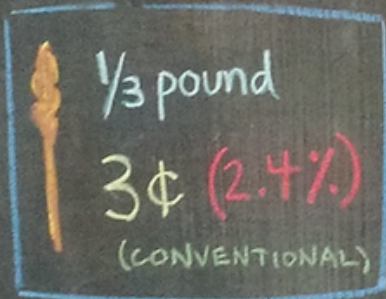 1/3 pound
3¢ (2.4%)
(CONVENTIONAL)